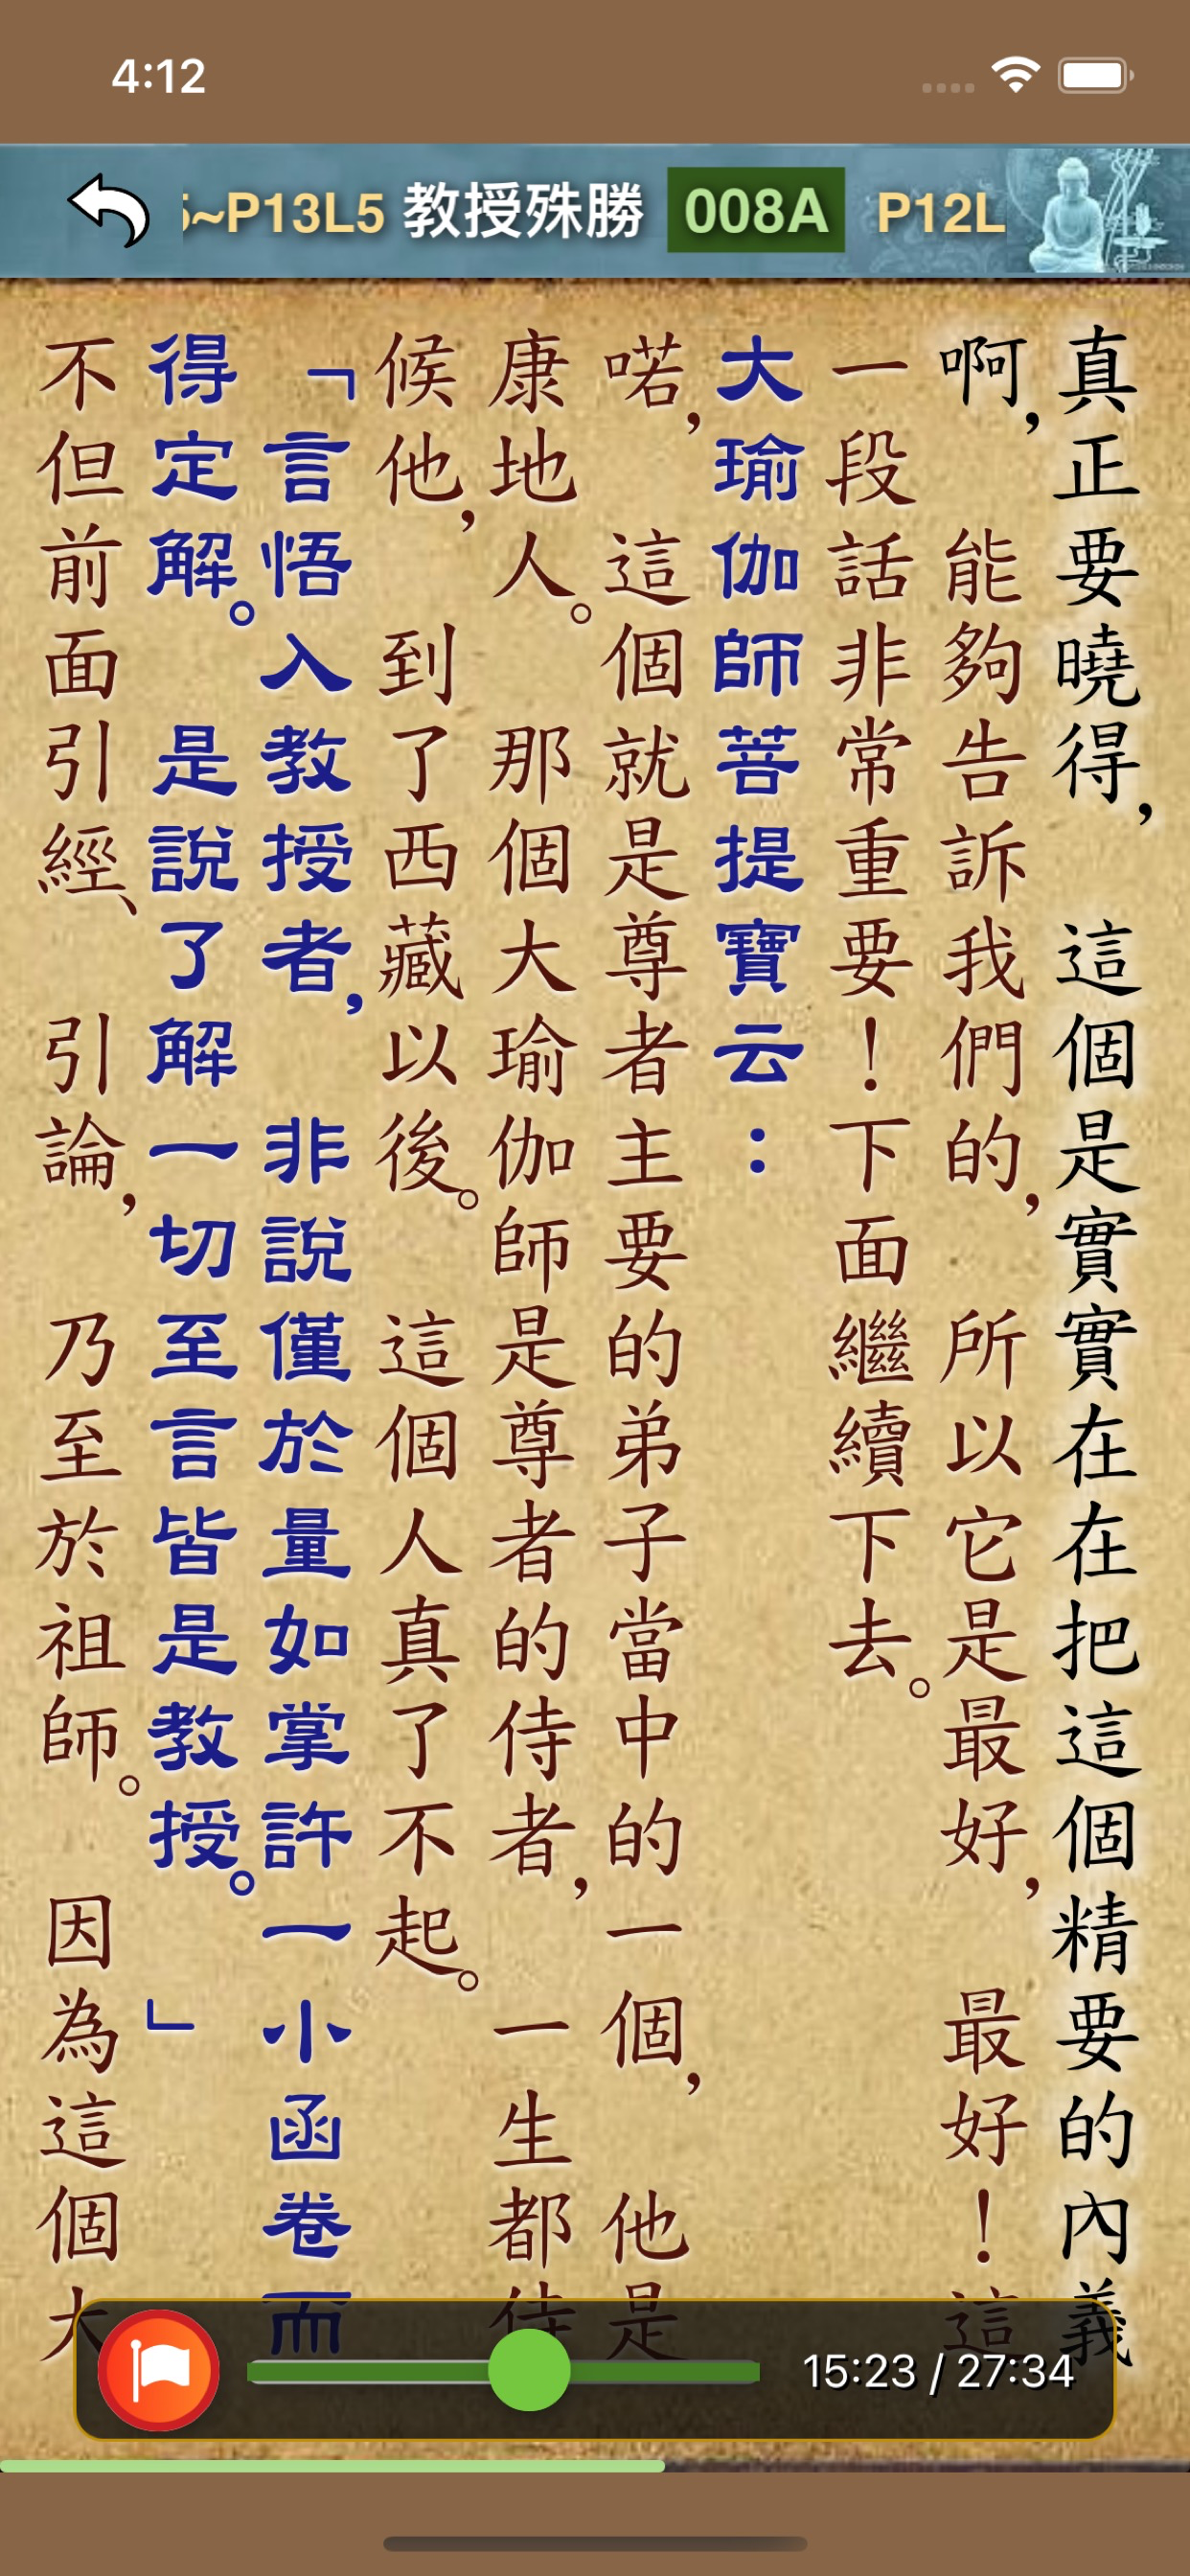 4:12
~P13L5 教授殊勝 008A P12L
真正要曉得，這個是實實在在把這個精要的內義
啊，能夠告訴我們的，所以它是最好，最好！這
一段話非常重要！下面繼續下去。
大瑜伽師菩提寶云：
喏，這個就是尊者主要的弟子當中的一個，他是
康地人。那個大瑜伽師是尊者的侍者，一生都侍
候他，到了西藏以後。這個人真了不起。
「言悟入教授者，非說僅於量如掌許一小函卷而
得定解。是說了解一切至言皆是教授。」
不但前面引經、引論，乃至於祖師。因為這個大
15:23 / 27:34